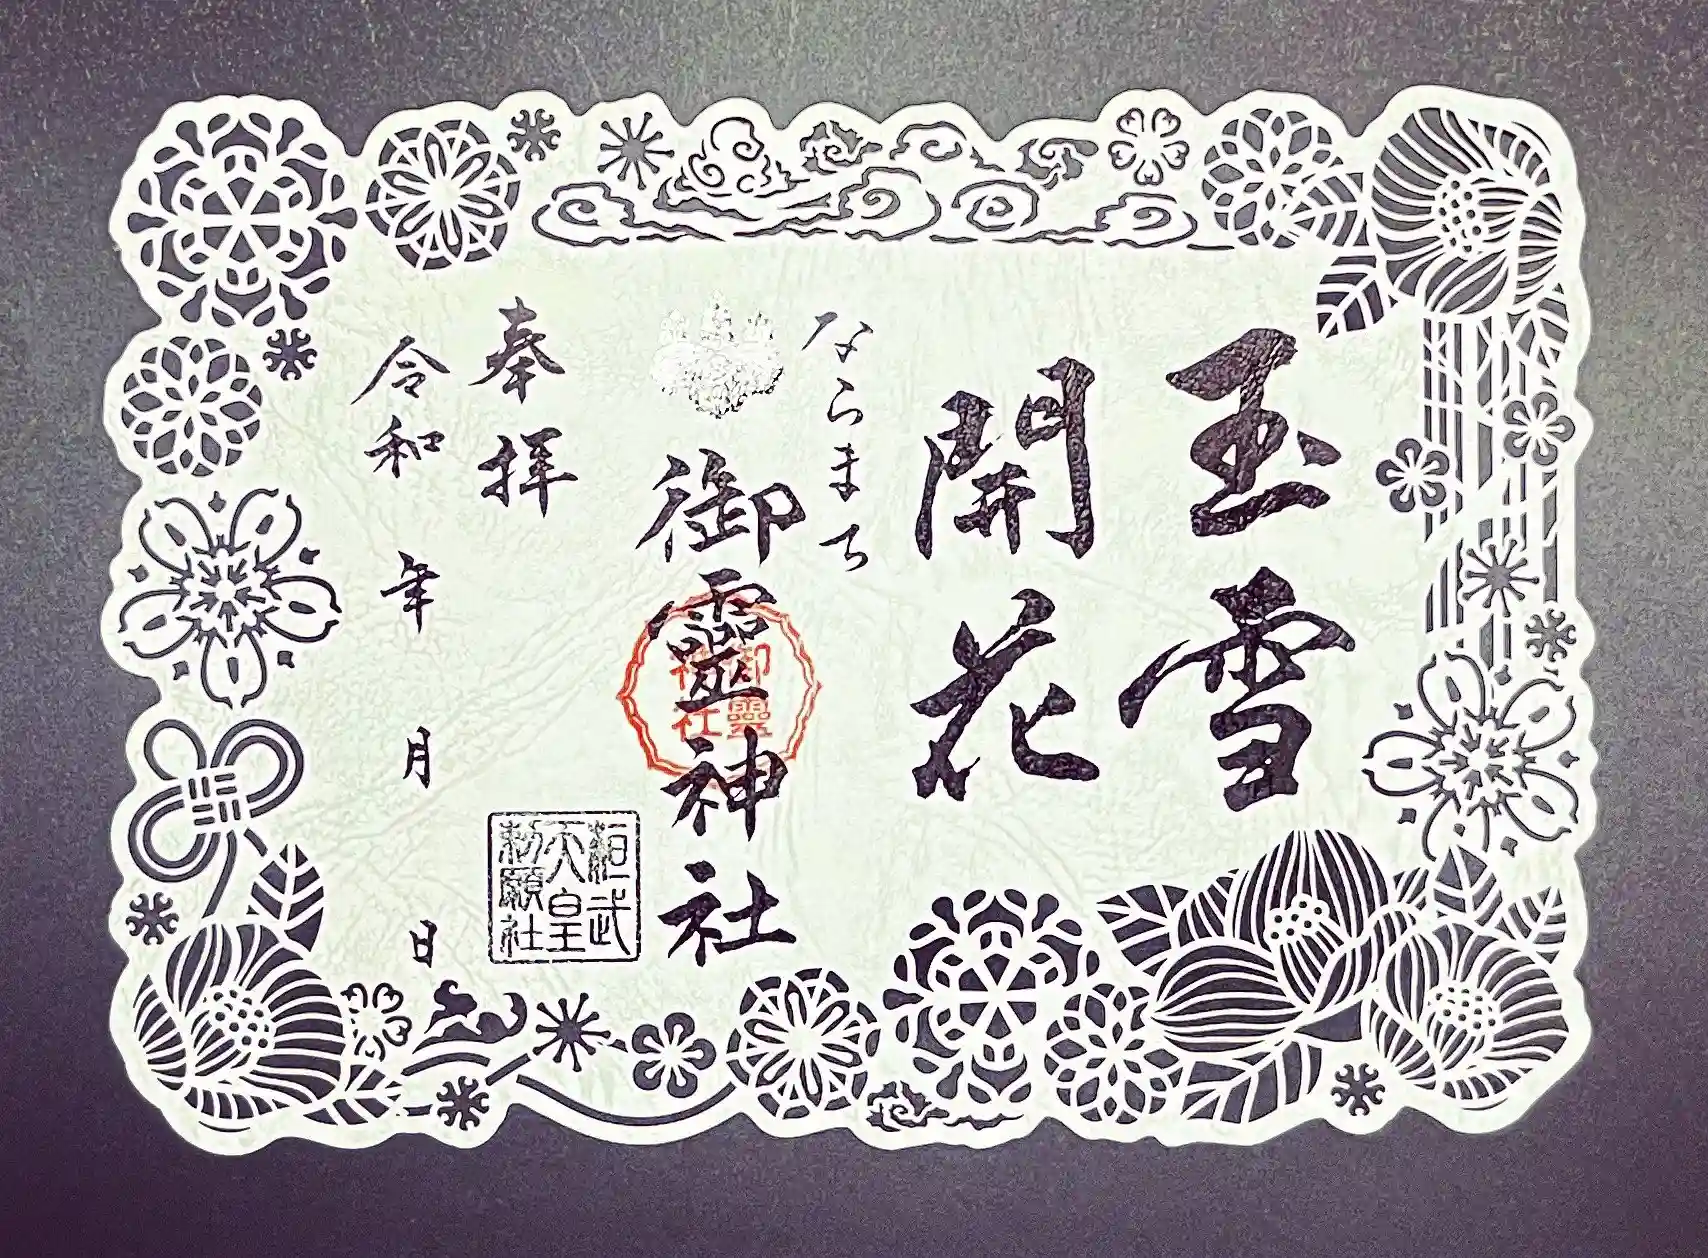 玉雪
開花
ならまち
御靈神社
御靈
神社
奉拝
桓武
天皇
勅願社
令和 年 月 日